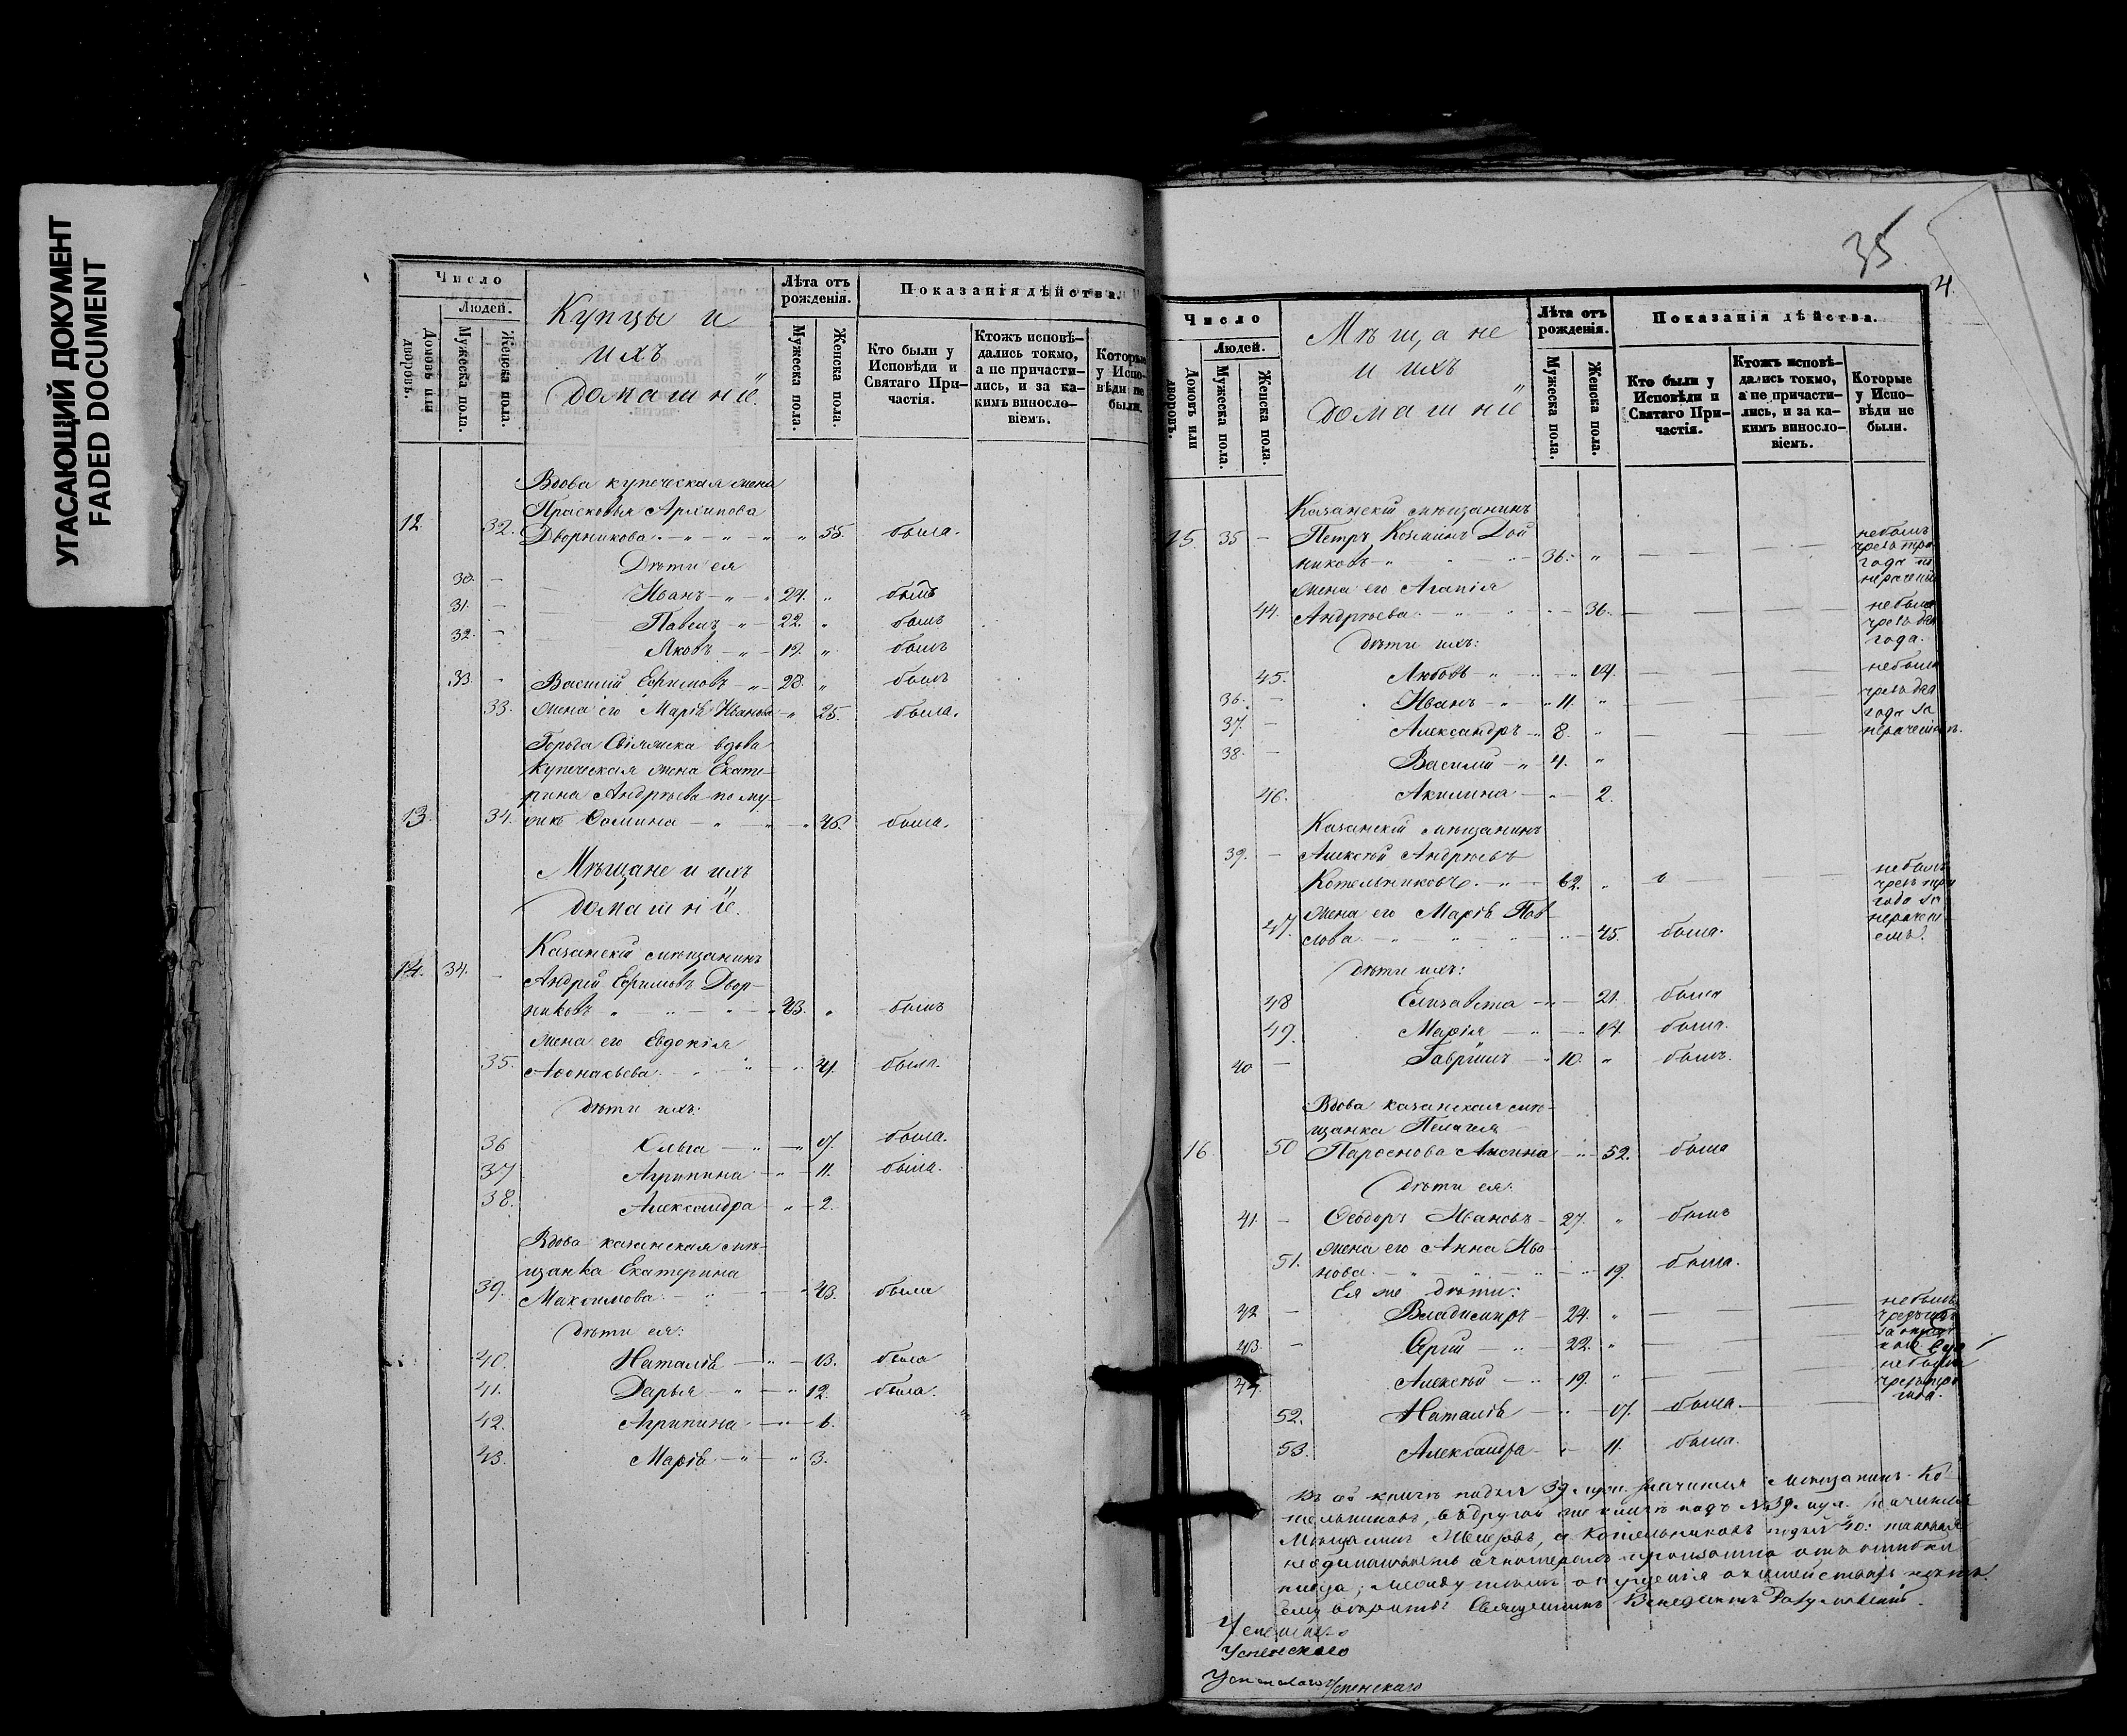 УГАСАЮЩИЙ ДОКУМЕНТ
FADED DOCUMENT
Число
Людей.
Домовъ или дворовъ.
Мужеска пола.
Женска пола.
Купцы и
ихъ
домашнiе
Лѣта отъ рожденiя.
Мужеска пола.
Женска пола.
Показанiя дѣйства.
Кто были у Исповѣди и Святаго При-частiя.
Ктожъ исповѣ-дались токмо, а не причасти-лись, и за ка-кимъ винослo-вiемъ.
Которые у Испо-вѣди не были.
Вдова купеческая жена
Прасковья Архипова
12. 32. Дворникова 55. была.
Дѣти ея
30. Иванъ 24. былъ
31. Павелъ 22. былъ
32. Яковъ 19. былъ
33. Василiй Ефимовъ 28. былъ
33. Жена его Марiя Иванова 25. была.
Города Свiяжска вдова
купеческая жена Екате-
рина Андреева по му-
13. 34. жѣ Фомина 46. была.
Мѣщане и ихъ
домашнiе.
Казанскiй мѣщанинъ
14. 34. Андрей Ефимовъ Двор-
никовъ 43. былъ
Жена его Евдокiя
35. Афонасьева 41. была.
Дѣти ихъ:
36 Ольга 17. была.
37 Агрипина 11. была.
38. Александра 2.
Вдова казанская мѣ-
щанка Екатерина
39. Максимова 43. была
Дѣти ея:
40. Наталiя 13. была
41. Дарья 12. была.
42. Агрипина 6.
43. Марiя 3.
35
4
Число
Людей.
Домовъ или дворовъ.
Мужеска пола.
Женска пола.
Мѣщане
и ихъ
домашнiе
Лѣта отъ рожденiя.
Мужеска пола.
Женска пола.
Показанiя дѣйства.
Кто были у Исповѣди и Святаго При-частiя.
Ктожъ исповѣ-дались токмо, а не причасти-лись, и за ка-кимъ винослo-вiемъ.
Которые у Испо-вѣди не были.
Казанскiй мѣщанинъ
15. 35 Петръ Козминъ Дой
никовъ 36. небылъ чрезъ три года
Жена его Агапiя
44. Андреева 36. небыла чрезъ два года.
Дѣти ихъ:
45. Любовь 14. небыла
36. Иванъ 11. чрезъ два года за
37. Александръ 8. нераченiемъ.
38. Василiй 4.
46. Акилина 2.
Казанскiй мѣщанинъ
39. Алексѣй Андреевъ
Котельниковъ 62. небылъ чрезъ три года за нерачеиi-емъ.
47. Жена его Марiя Пав-
лова 45. была.
Дѣти ихъ:
48 Елизавета 21. была
49. Марiя 14. была.
40 Гаврiилъ 10. былъ.
Вдова казанская мѣ-
щанка Пелагея
16 50 52. была
Дѣти ея:
41. Феодоръ Ивановъ 27. былъ
51. Жена его Анна Ива
нова 19. была.
Ея же дѣти:
42 Владимиръ 24. небылъ
43. Сергiй 22.
44. Алексѣй 19. небылъ
52. Наталiя 17. была.
53. Александра 11. была.
39 значится Мещанинъ Ко-
тельниковъ, въ другой же книгѣ подъ №39
Мещанинъ а Котельниковъ 40:
произошло отъ ошибки
писца;
Священникъ
Успенскаго
Успенскаго
Успенскаго